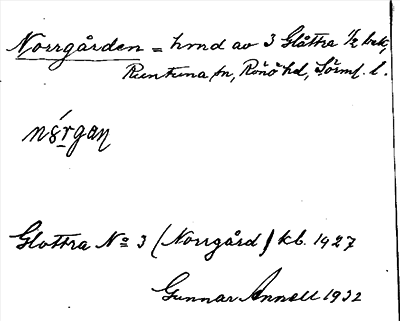 Norrgården = hmd av 3 Glåttra 1/2 bek,
Runtuna sn, Rönö hd, Sörml. l.
nórgaŋ
Glottra No 3 (Norrgård) kb. 1927
Gunnar Annell 1932